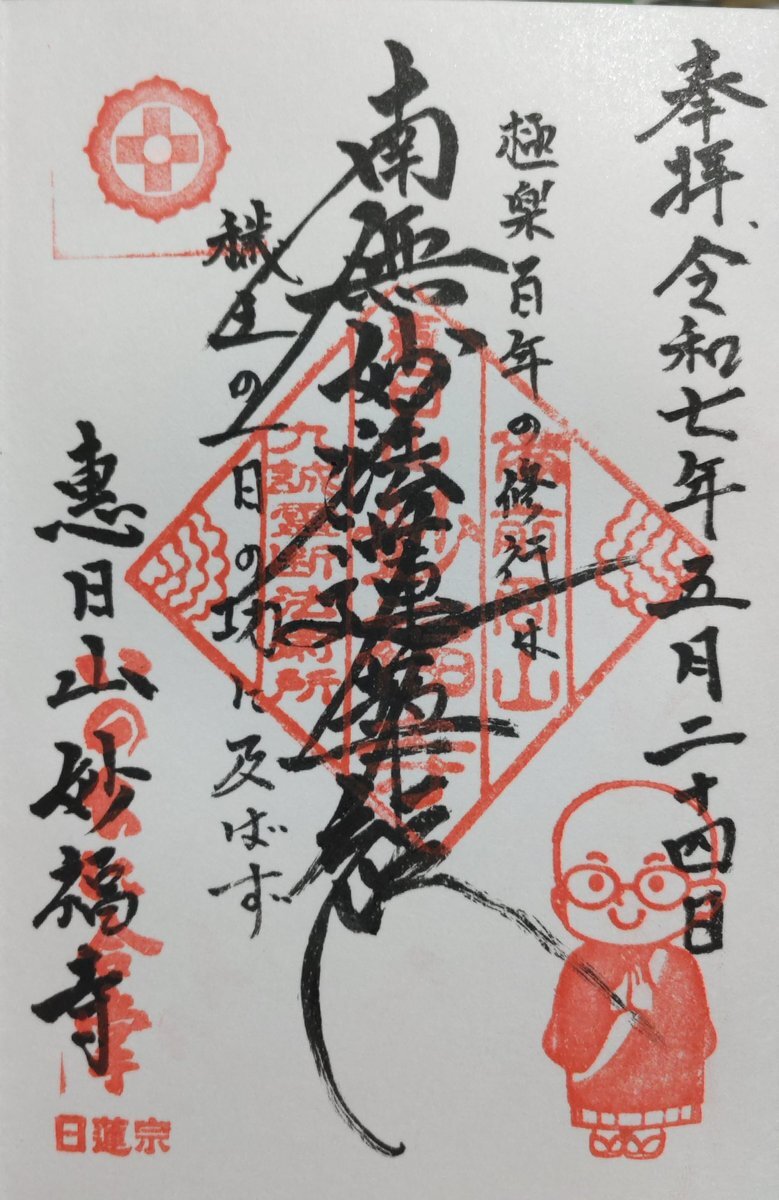 奉拝 令和七年五月二十四日
極楽百年の修行は
南無妙法蓮華経
穢土の一日の功に及ばず
恵日山妙福寺
九識霊断法務所
日蓮宗